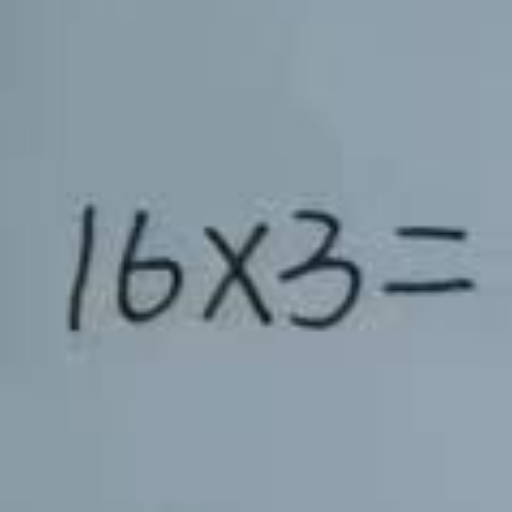 16×3=